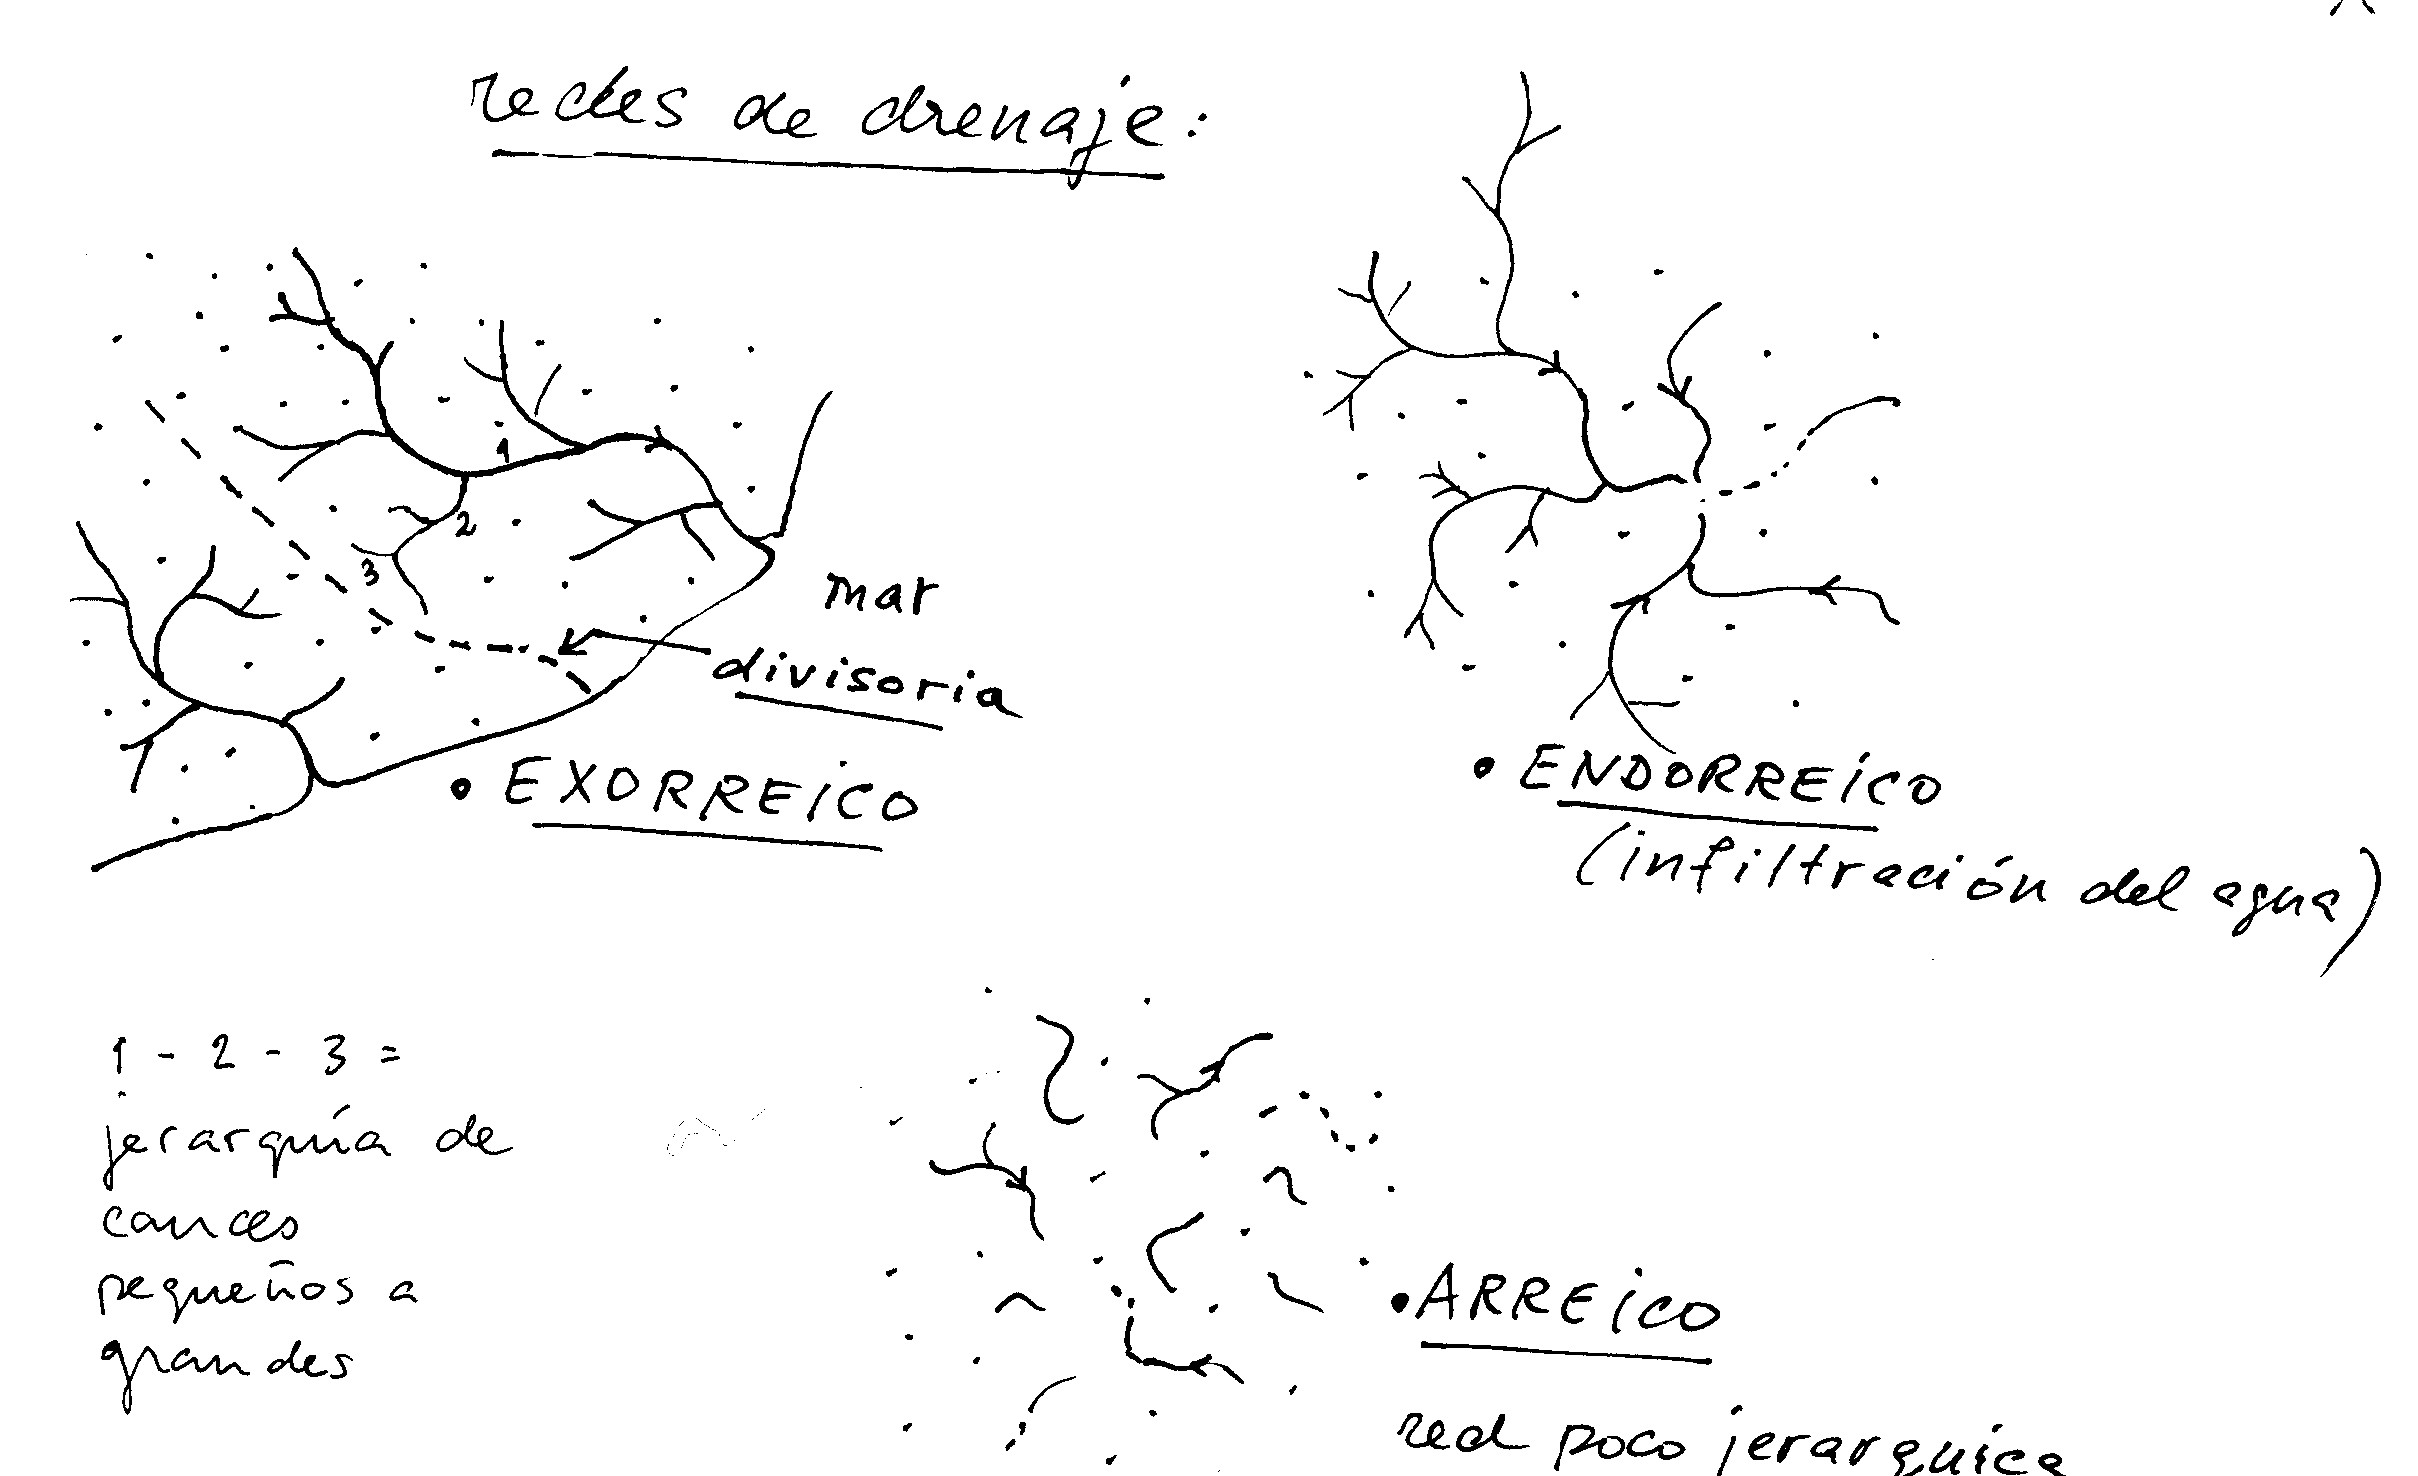 redes de drenaje:
1
2
3
mar
divisoria
• EXORREICO
• ENDORREICO
(infiltración del agua)
1 - 2 - 3 =
jerarquía de
cauces
pequeños a
grandes
• ARREICO
red poco jerarquica